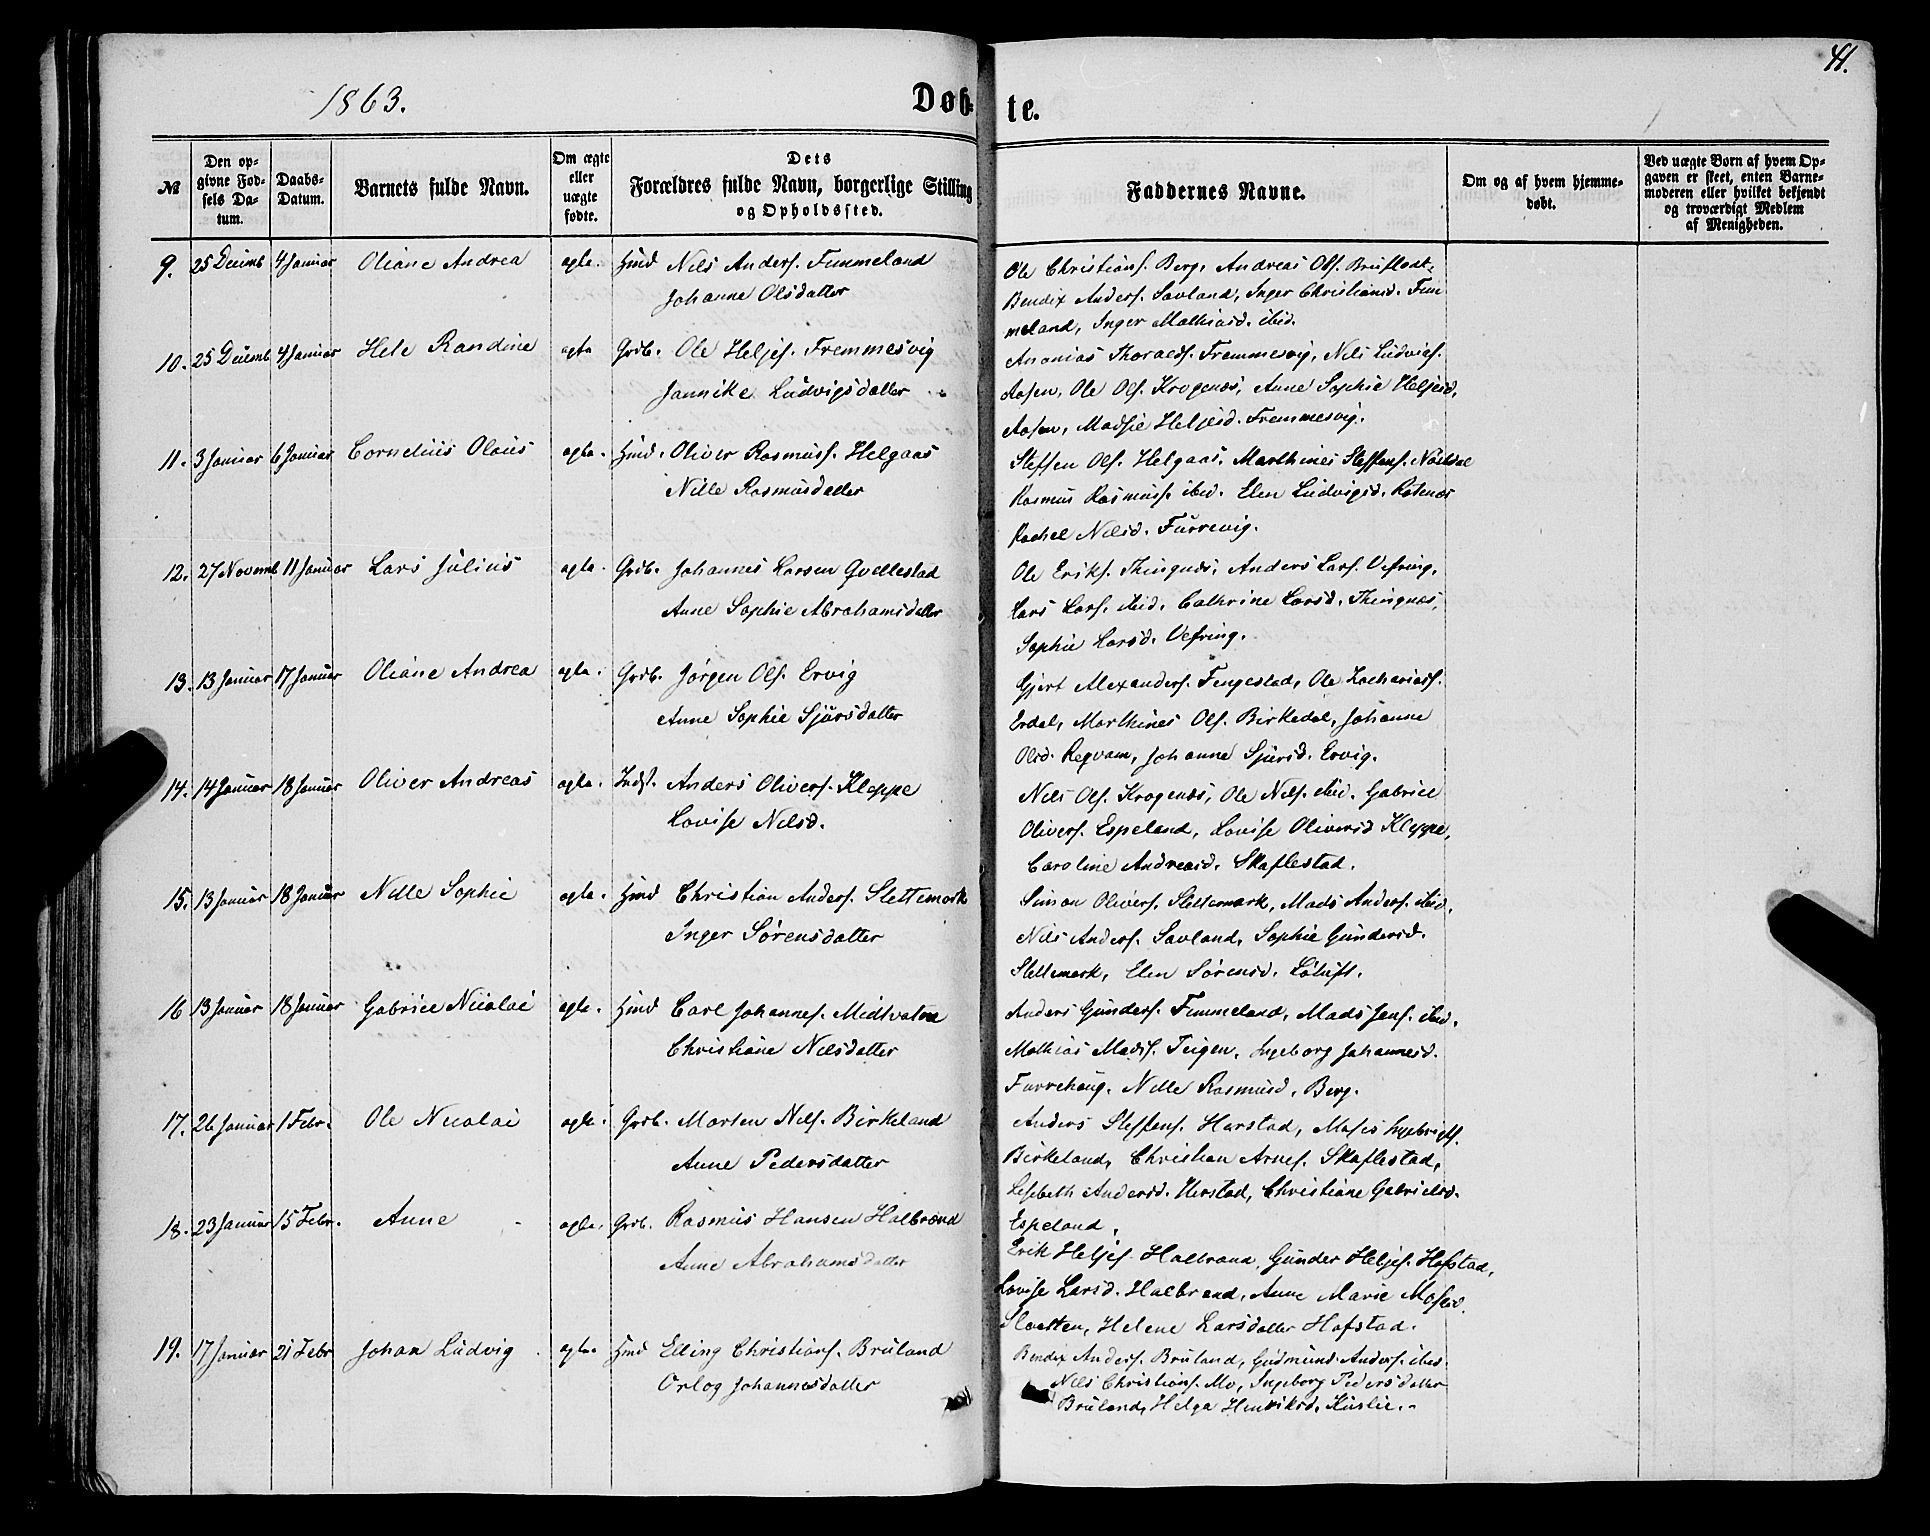 41.
1863.
Døb- te.
№
Den opgivne Fødsels Datum.
Daabs-Datum.
Barnets fulde Navn.
Om ægte eller uægte fødte.
Dets Forældres fulde Navn, borgerlige Stilling og Opholdssted.
Faddernes Navne.
Om og af hvem hjemmedøbt.
Ved uægte Børn af hvem Opgaven er skeet, enten Barnemoderen eller hvilket bekjendt og troværdigt Medlem af Menigheden.
9. 25 Decemb 4 Januar Oliane Andrea ægte. Hmd Nils Anders. Fimmeland
Johanne Olsdatter
Ole Christians. Berg, Andreas Ols. Brufladt,
Bendix Anders. Savland, Inger Christiansd. Fim
meland, Inger Mathiasd. ibid.
10. 25 Decemb 4 Januar Hele Randine ægte Grdb. Ole Heljes. Fremmesvig
Jannike Ludvigsdatter
Ananias Thorads. Fremmesvig, Nils Ludvigs.
Aasen, Ole Ols. Krogenæs, Anne Sophie Heljesd.
Aasen, Madsie Heljesd. Fremmesvig.
11. 3 Januar 6 Januar Cornelius Olaus ægte. Hmd. Oliver Rasmuss. Helgaas
Nille Rasmusdatter
Steffen Ols. Helgaas, Marthines Steffens.
Rasmus Rasmuss. ibid. Elen Ludvigsd.
Rachel Nilsd. Furrevig.
12. 27 Novemb 11 Januar Lars Julius ægte. Grdb. Johannes Larsen Gvellestad
Anne Sophie Abrahamsdatter
Ole Eriks. Thingnæs, Anders Lars. Vefring,
Lars Lars. ibid, Cathrine Larsd. Thingnæs,
Sophie Larsd. Vefring.
13. 13 Januar 17 Januar Oliane Andrea ægte. Grdb. Jørgen Ols. Ervig
Anne Sophie Sjursdatter
Gjert Alexanders. Fengestad, Ole Zacharias.
Erdal, Marthines Ols. Birkedal, Johanne
Olsd. Reqvam, Johanne Sjursd. Ervig.
14. 14 Januar 18 Januar Oliver Andreas ægte. Indst. Anders Olivers. Kleppe
Lovise Nilsd.
Nils Ols. Krogenæs, Ole Nils. ibid. Gabriel
Olivers. Espeland, Lovise Oliversd Kleppe,
Caroline Andreasd. Skaflestad.
15. 13 Januar 18 Januar Nille Sophie ægte. Hmd Christian Anders. Slettemark
Inger Sørensdatter
Simon Olivers. Slettemark, Mads Anders. ibid,
Nils Anders. Savland, Sophie Gundersd.
Slettemark, Elen Sørensd.
16 13 Januar 18 Januar Gabriel Nicolai ægte. Hmd Carl Johannes. Midtvaten
Christiane Nilsdatter
Anders Gunders. Fimmeland, Mads Jens. ibid,
Mathias Mads. Teigen, Ingeborg Johannesd.
Furrehaug. Nille Rasmusd. Berg.
17. 26 Januar 1 Febr. Ole Nicolai ægte. Grdb. Morten Nils. Birkeland
Anne Pedersdatter
Anders Steffens. Herstad, Moses Ingebrigts.
Birkeland, Christian Arnes. Skaflestad,
Lisbeth Andersd. Herstad, Christiane Gabrielsd.
Espeland.
18. 23 Januar 15 Febr. Anne ægte. Grdb. Rasmus Hansen Halbrand
Anne Abrahamsdatter
Erik Heljes. Halbrand, Gunder Heljes. Hofstad,
Lovise Larsd. Halbrand, Anne Marie Mosesd.
Slaatten, Helene Larsdatter Hofstad.
19. 17 Januar 21 Febr Johan Ludvig ægte. Hmd Elling Christians. Bruland
Orlog Johannesdatter
Bendix Anders. Bruland, Gudmund Anders. ibid.
Nils Christians. Mo, Ingeborg Pedersdatter
Bruland, Helga Henriksd. Kuslie.